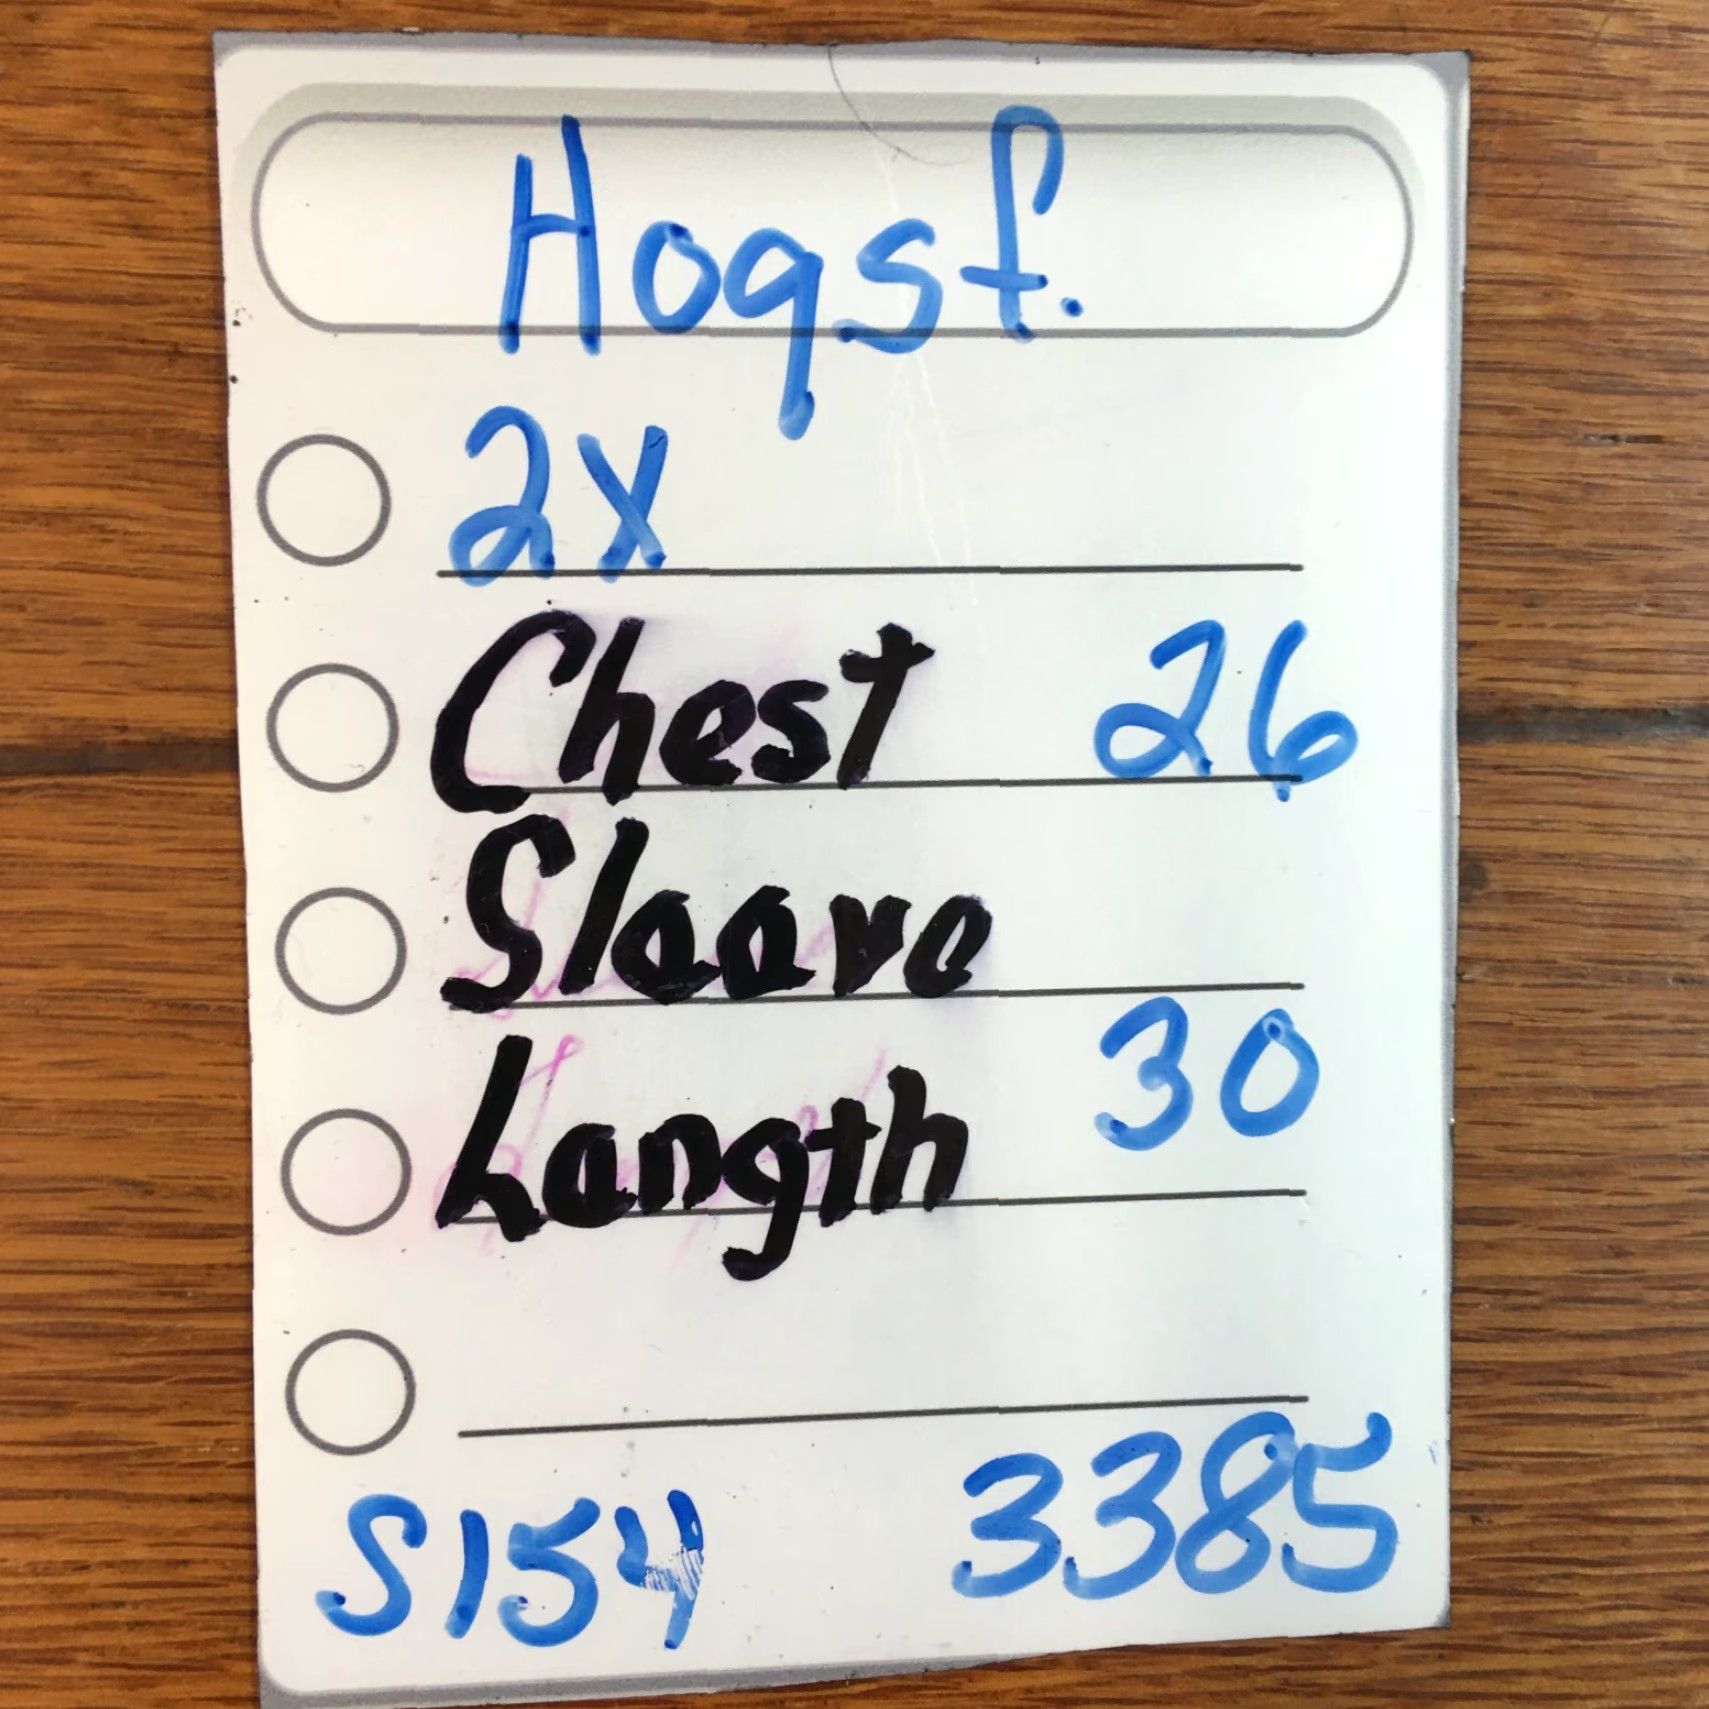 Hoqsf.
2X
Chest 26
Sleeve
Length 30
S154 3385